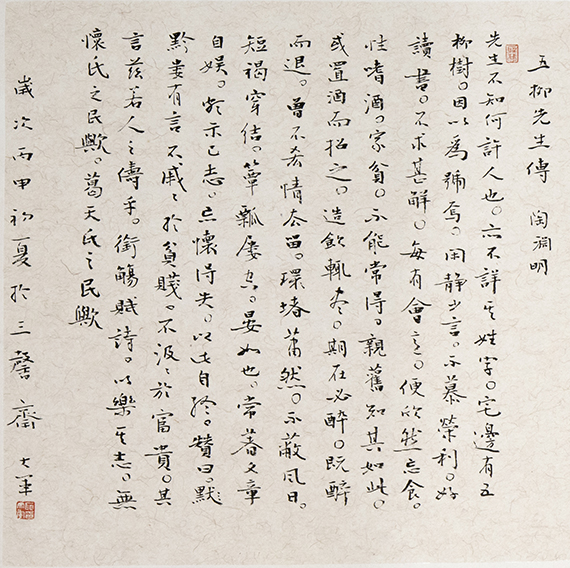 五柳先生傳 陶淵明
先生不知何許人也。亦不詳其姓字。宅邊有五
柳樹。因以為號焉。閑静少言。不慕榮利。好
讀書。不求甚解。每有會意。便欣然忘食。
性嗜酒。家貧。不能常得。親舊知其如此。
或置酒而招之。造飲輒盡。期在必醉。既醉
而退。曾不吝情去留。環堵蕭然。不蔽風日。
短褐穿結。簞瓢屢空。晏如也。常著文章
自娛。頗示己志。忘懷得失。以此自終。贊曰。默
黔婁有言不戚〻於貧賤。不汲〻於富貴。其
言茲若人之儔乎。銜觴賦詩。以樂其志。無
懷氏之民歟。葛天氏之民歟
歲次丙申初夏於三馨齋 大軍